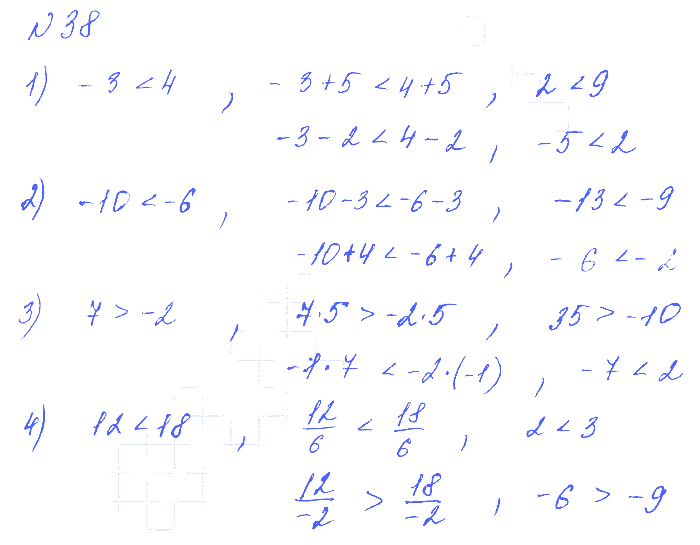 N 38
1) -3 < 4 , -3+5 < 4+5 , 2 < 9
-3-2 < 4-2 , -5 < 2
2) -10 < -6 , -10-3 < -6-3 , -13 < -9
-10+4 < -6+4 , -6 < -2
3) 7 > -2 , 7·5 > -2·5 , 35 > -10
-1·7 < -2·(-1) , -7 < 2
4) 12 < 18 , 12/6 < 18/6 , 2 < 3
12/-2 > 18/-2 , -6 > -9